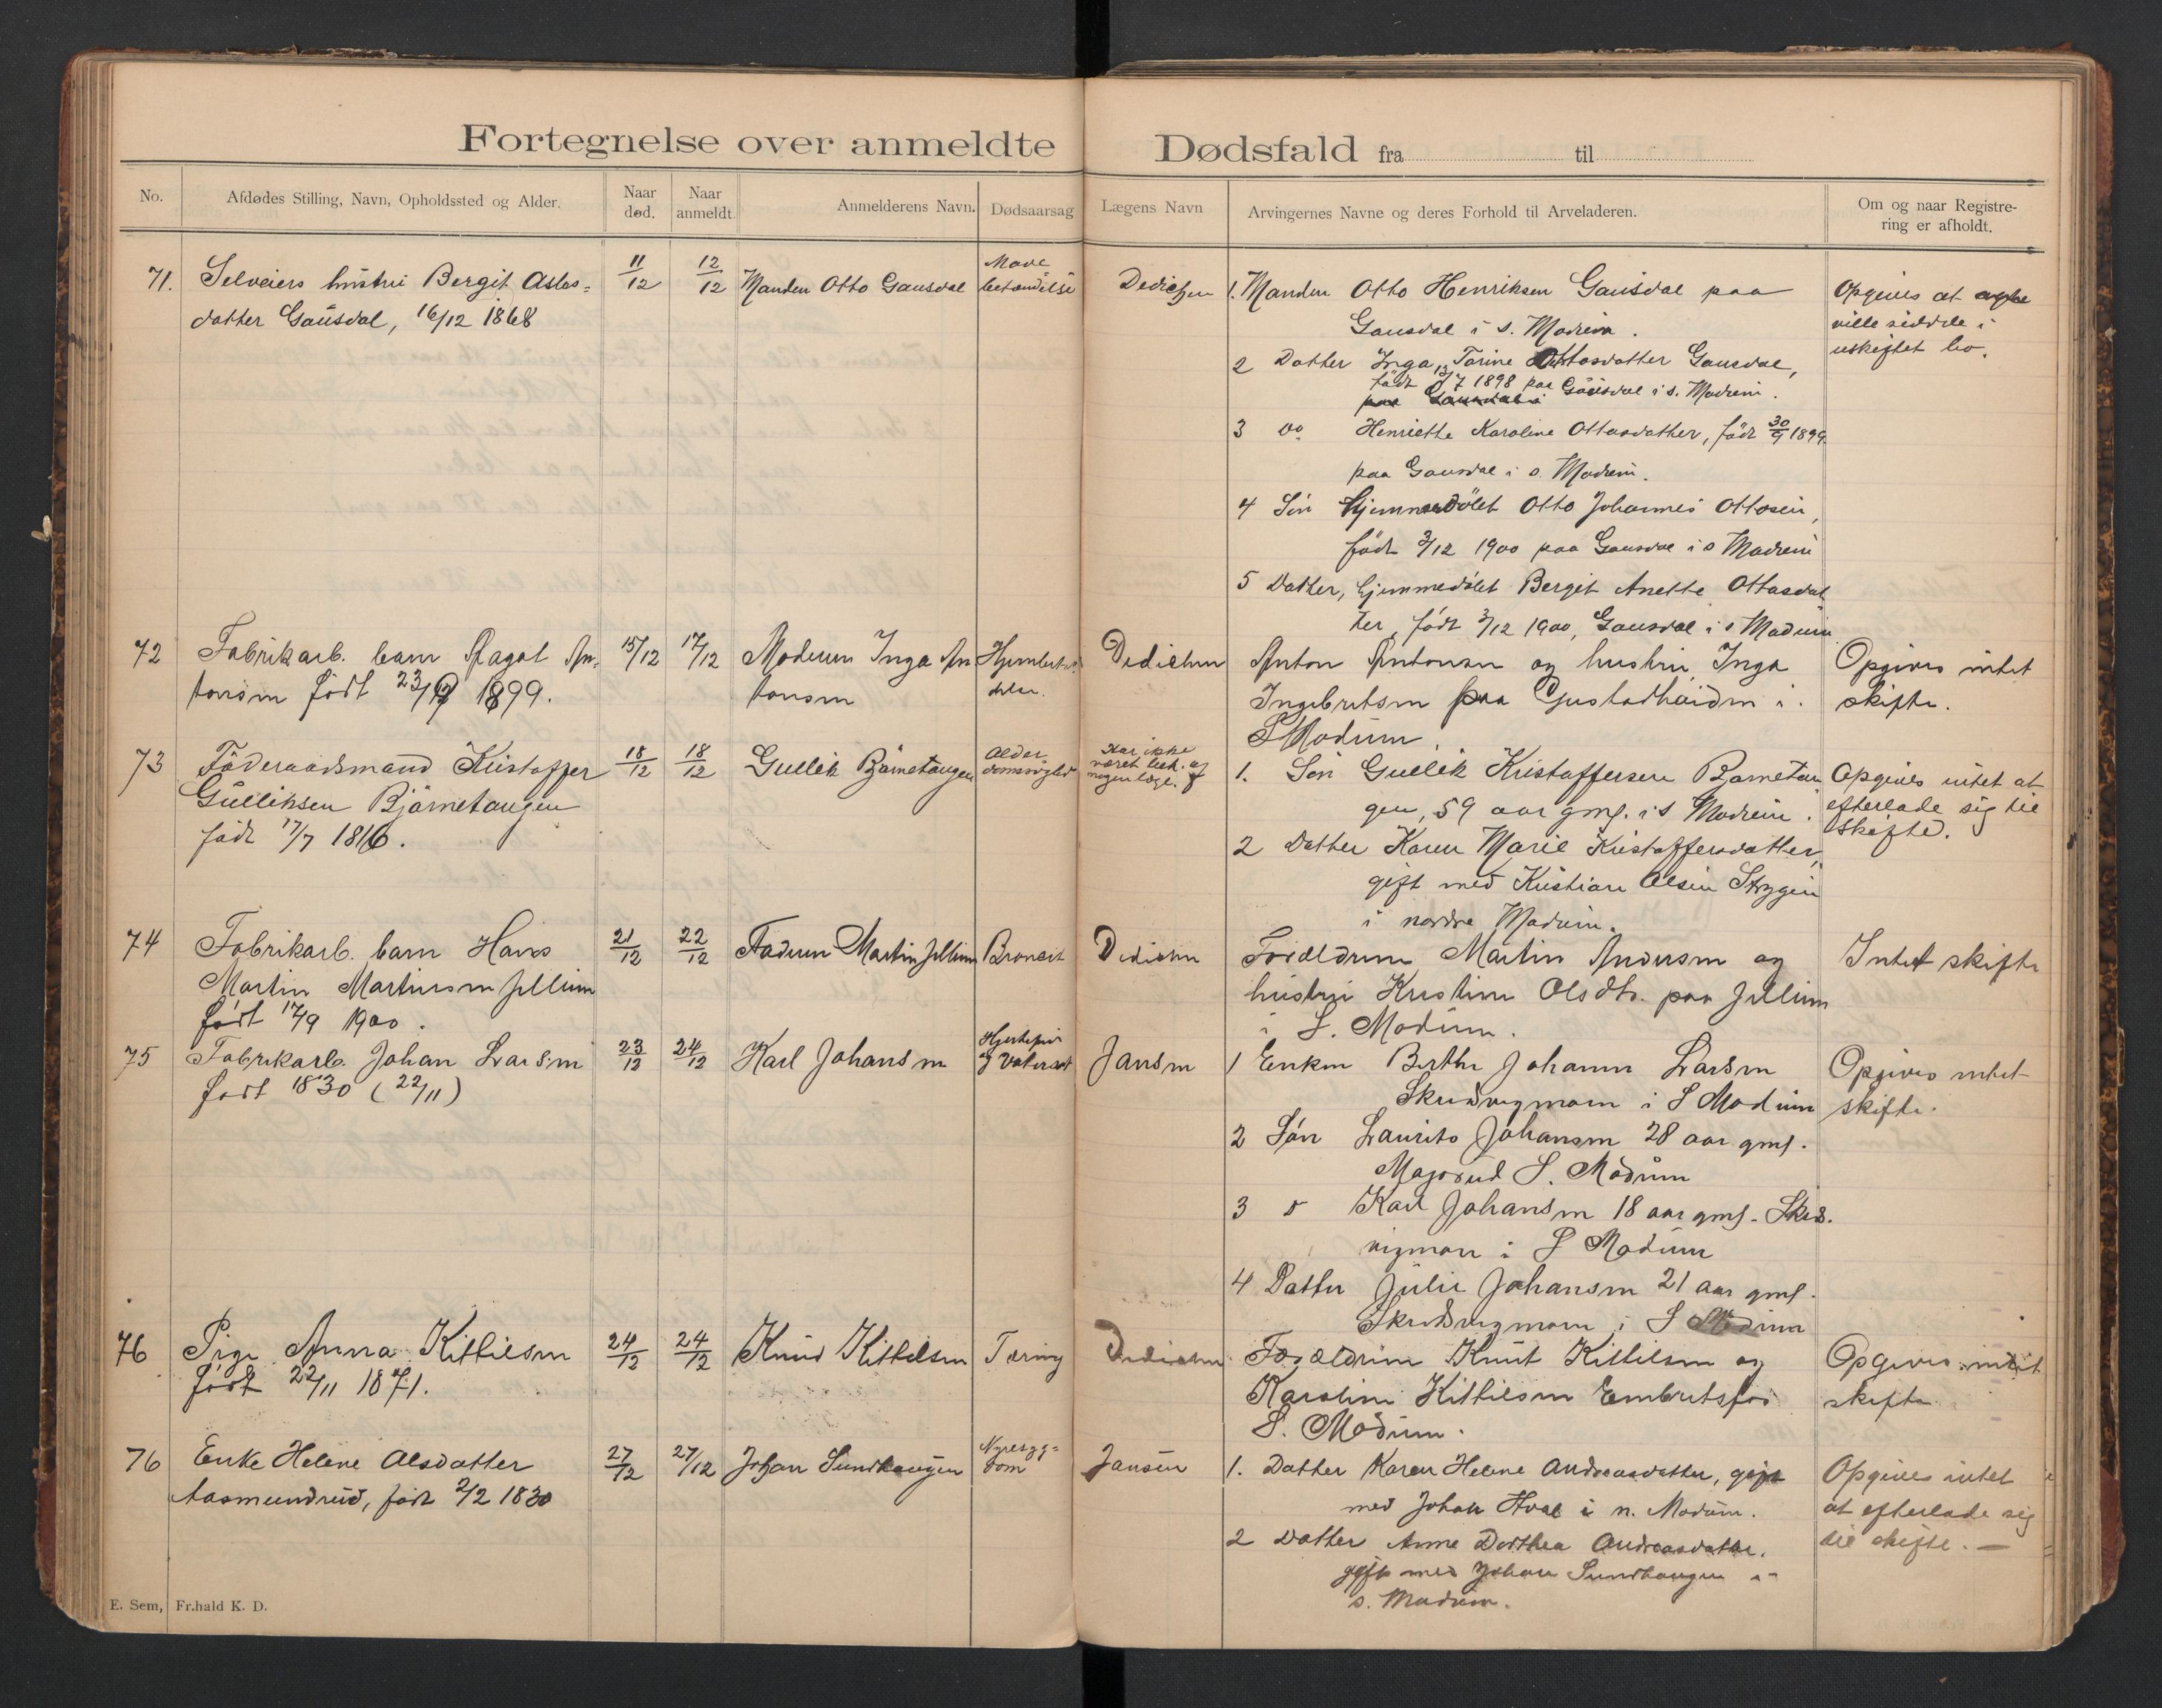 Fortegnelse over anmeldte Dødsfald fra til
No. Afdødes Stilling, Navn, Opholdssted og Alder. Naar død. Naar anmeldt. Anmelderens Navn. Dødsaarsag Lægens Navn Arvingernes Navne og deres Forhold til Arveladeren. Om og naar Registrering er afholdt.
71. Selveiers hustru Bergit Aslos= 11/12 12/12 Manden Otto Gausdal Mave
betændelse Dedichen
datter Gausdal, 16/12 1868
1. Manden Otto Henriksen Gausdal paa
Gausdal i s. Modum.
2 Datter Inga Torine Ottosdatter Gausdal,
født 13/7 1898 paa Gausdal i s. Modum.
3 do Henriette Karoline Ottosdatter, født 30/9 1899
paa Gausdal i s. Modum.
4 Søn Hjemmedøbt Otto Johannes Ottosen,
født 3/12 1900 paa Gausdal i s Modum
5 Datter, hjemmedøbt Bergit Anette Ottosdat
ter, født 3/12 1900, Gausdal i s Modum
Opgives at
ville sidde i
uskiftet bo.
72 Fabrikarb. barn Aagot An= 15/12 17/12 Moderen Inga An Dedichen
tonsen født 1899. tonsen
Anton Antonsen og hustru Inga
Ingebretsen paa Gustadhaugen i
S Modum.
Opgives intet
skifte.
73 Føderaadsmand Kristoffer 18/12 18/12 Gullik Bjørnetangen Alder-
domssvaghed
Gulliksen Bjørnetangen
født 17/7 1816.
Har ikke
været beh. af
nogen læge.
1. Søn Gullik Kristoffersen Bjørnetan
gen, 59 aar gml. i S Modum.
2 Datter Karen Marie Kristoffersdatter,
gift med Kristian Olsen Strygen
i nordre Modum.
Opgives intet at
efterlade sig til
skifte.
74 Fabrikarb. barn Hans 21/12 22/12 Faderen Martin Jellum Bronkit Dedichen
Martin Martinsen Jellum
født 17/9 1900.
Forældrene Martin Andersen og
hustru Kristine Olsdtr. paa Jellum
i S. Modum.
Intet skifte
75 Fabrikarb. Johan Larsen 23/12 24/12 Karl Johansen Hjertefeil
og Vatersot Jansen
født 1830 (22/11)
1 Enken Berthe Johanne Larsen
Skredvigmoen i S Modum
2 Søn Laurits Johansen 28 aar gml.
S. Modum
3 d Karl Johansen 18 aar gml. Skred.
vigmoen i S Modum
4 Datter Julie Johansen 21 aar gml.
Skredvigmoen i S Modum
Opgives intet
skifte.
76 Pige Anna Kittilsen 24/12 24/12 Knud Kittilsen Tæring Dedichen
født 22/11 1871.
Forældrene Knut Kittilsen og
Karoline Kittilsen Embretsfos
S. Modum.
Opgives intet
skifte
76 Enke Helene Olsdatter 27/12 27/12 Johan Sundhaugen Nyresyg=
dom Jansen
Aasmundrud, født 2/2 1830
1. Datter Karen Helene Andreasdatter, gift
med Johan Hval i n. Modum.
2 Datter Anne Dorthea Andreasdatter,
gift med Johan Sundhaugen i
s. Modum.
Opgives intet
at efterlade sig
til skifte. —
E. Sem, Fr.hald K. D.